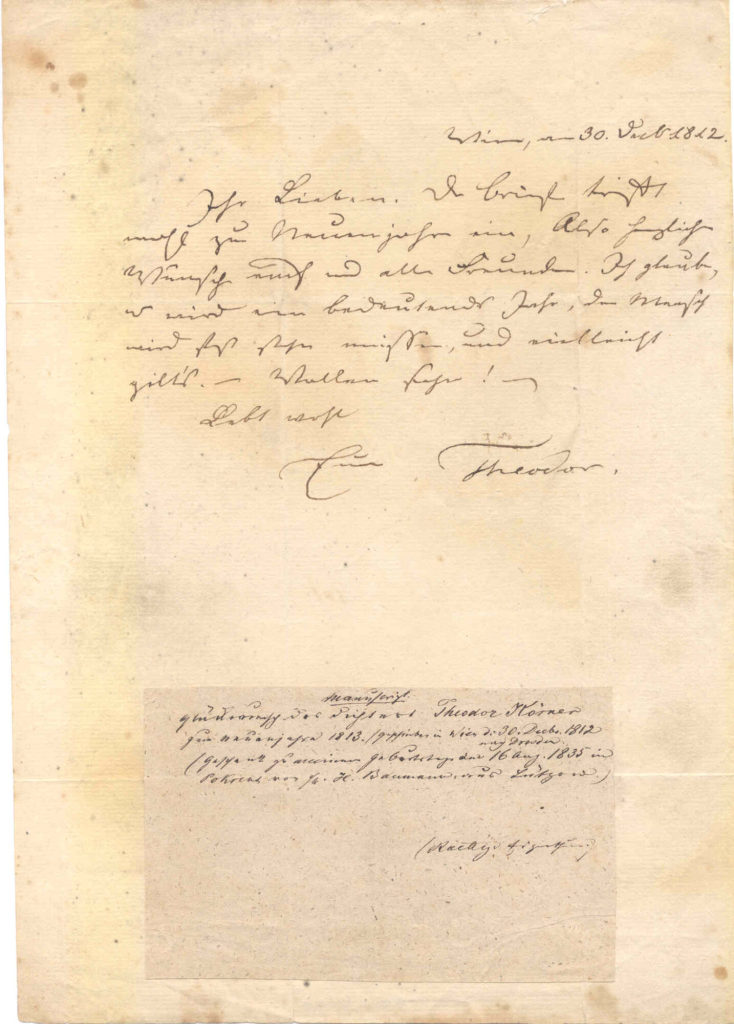 Wien, am 30. Decb 1812.
Ihr Lieben. Der Brief trifft
wohl zum Neuenjahre ein, Also herzliche
Wünsche euch und allen Freunden. Ich glaube,
es wird ein bedeutendes Jahr, der Mensch
wird fest stehn müssen, und vielleicht
gilt's. – Wollen sehn! –
Lebt wohl
Euer Theodor.
Manuscript.
Glückwunsch des Dichters Theodor Körner
zum neuen Jahre 1813. (Geschrieben in Wien d: 30. Decbr. 1812
nach Dresden.
(Geschenk zu meinem Geburtstage den 16 Aug. 1835 in
von H. Baumann aus Lützow.)